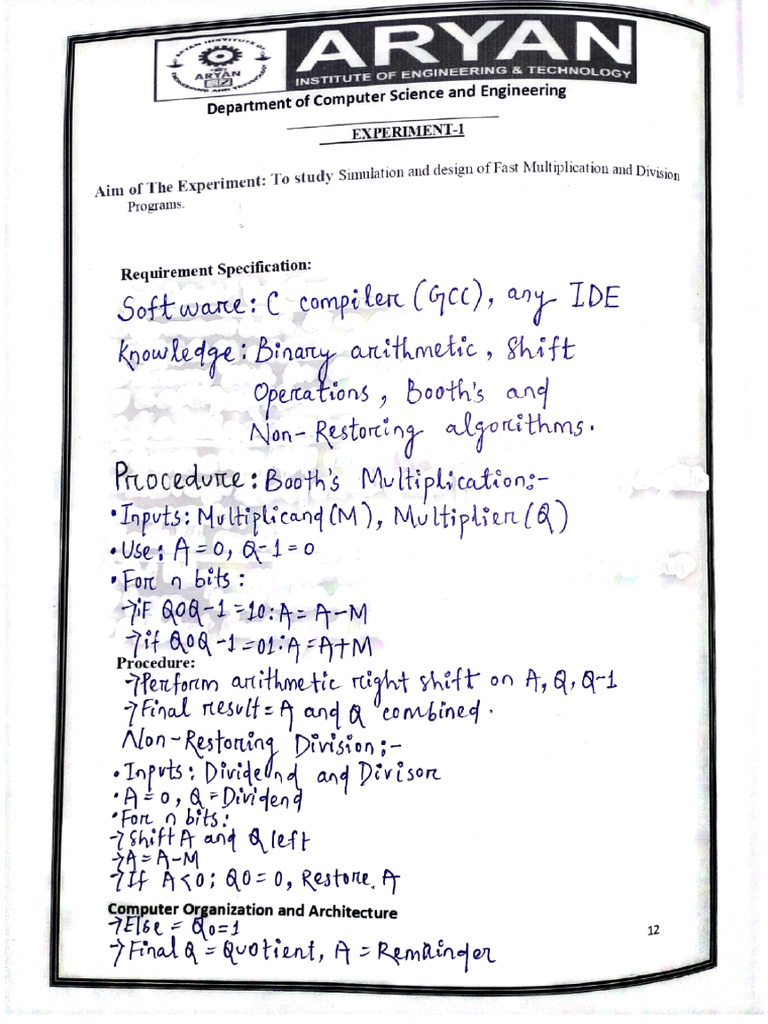 ARYAN INSTITUTE OF
ARYAN
ENGINEERING AND TECHNOLOGY
ARYAN
INSTITUTE OF ENGINEERING & TECHNOLOGY
Department of Computer Science and Engineering
EXPERIMENT-1
Aim of The Experiment: To study Simulation and design of Fast Multiplication and Division
Programs.
Requirement Specification:
Software: C compiler (GCC), any IDE
Knowledge: Binary arithmetic, Shift
Operations, Booth's and
Non-Restoring algorithms.
Procedure: Booth's Multiplication:-
•Inputs: Multiplicand(M), Multiplier(Q)
•Use: A=0, Q-1=0
•For n bits:
→if Q0Q-1=10: A=A-M
→if Q0Q-1=01: A=A+M
Procedure:
→Perform arithmetic right shift on A, Q, Q-1
→Final result= A and Q combined.
Non-Restoring Division:-
•Inputs: Dividend and Divisor
•A=0, Q=Dividend
•For n bits:
→Shift A and Q left
→A=A-M
→If A<0; Q0=0, Restore A
Computer Organization and Architecture
→Else = Q0=1
12
→Final Q = Quotient, A = Remainder